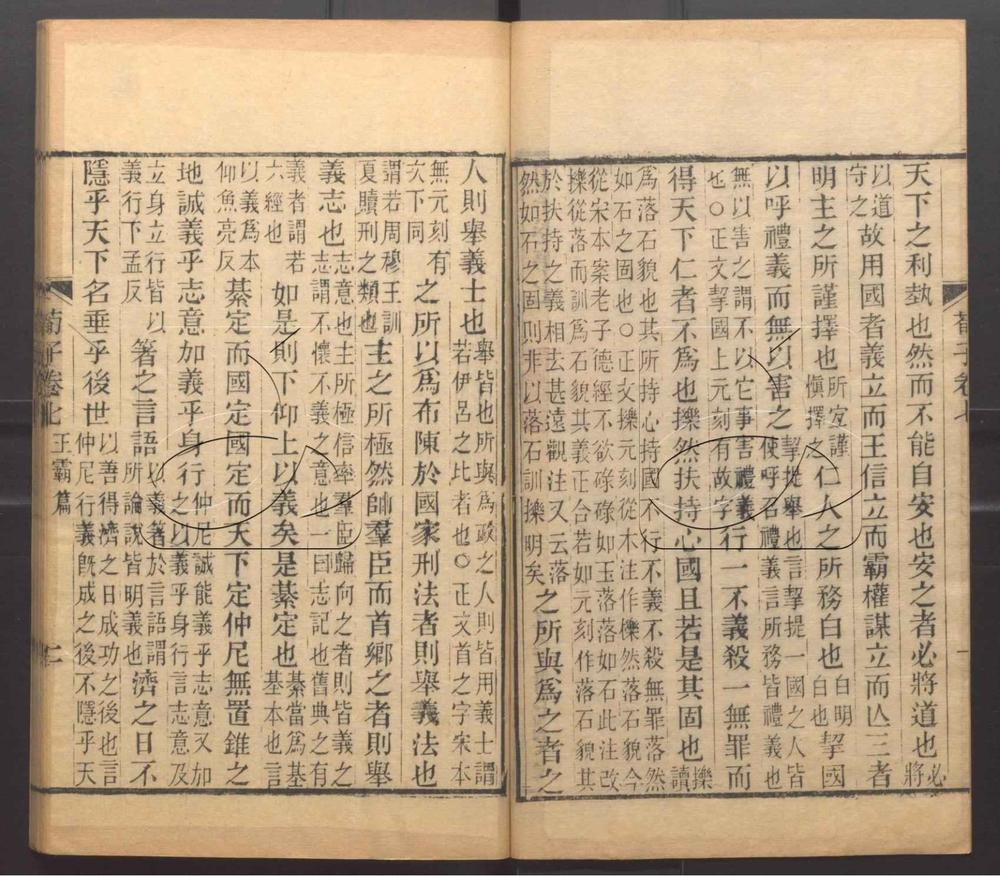 荀子卷七 一
天下之利埶也然而不能自安也安之者必將道也必將
以道守之故用國者義立而王信立而霸權謀立而亾三者
明主之所謹擇也所宜謹慎擇之仁人之所務白也白明白也挈國
以呼禮義而無以害之挈提舉也言挈提一國之人皆使呼召禮義言所務皆禮義也
無以害之謂不以它事害禮義也○正文挈國上元刻有故字行一不義殺一無罪而
得天下仁者不爲也擽然扶持心國且若是其固也擽讀
爲落石貌也其所持心持國不行不義不殺無罪落然
如石之固也○正文擽元刻從木注作櫟然落石貌今
從宋本案老子德經不欲碌碌如玉落落如石此注改
擽從落而訓爲石貌其義正合若如元刻作落石貌其
於扶持之義相去甚遠觀注又云落然如石之固則非以落石訓擽明矣之所與爲之者之
人則舉義士也舉皆也所與爲政之人則皆用義士謂若伊呂之比者也○正文首之字宋本
無元刻有次下同之所以爲布陳於國家刑法者則舉義法也
謂若周穆王訓夏贖刑之類也主之所極然帥羣臣而首鄉之者則舉
義志也志意也主所極信率羣臣歸向之者則皆義之志謂不懷不義之意也一曰志記也舊典之有
義者謂若六經也如是則下仰上以義矣是綦定也綦當爲基基本也言
以義爲本仰魚亮反綦定而國定國定而天下定仲尼無置錐之
地誠義乎志意加義乎身行仲尼誠能義乎志意又加之以義乎身行言志意及
立身立行皆以義行下孟反箸之言語以義箸於言語謂所論說皆明義也濟之日不
隱乎天下名垂乎後世以善得濟之日成功之後也言仲尼行義既成之後不隱乎天
荀子卷七 王霸篇 二